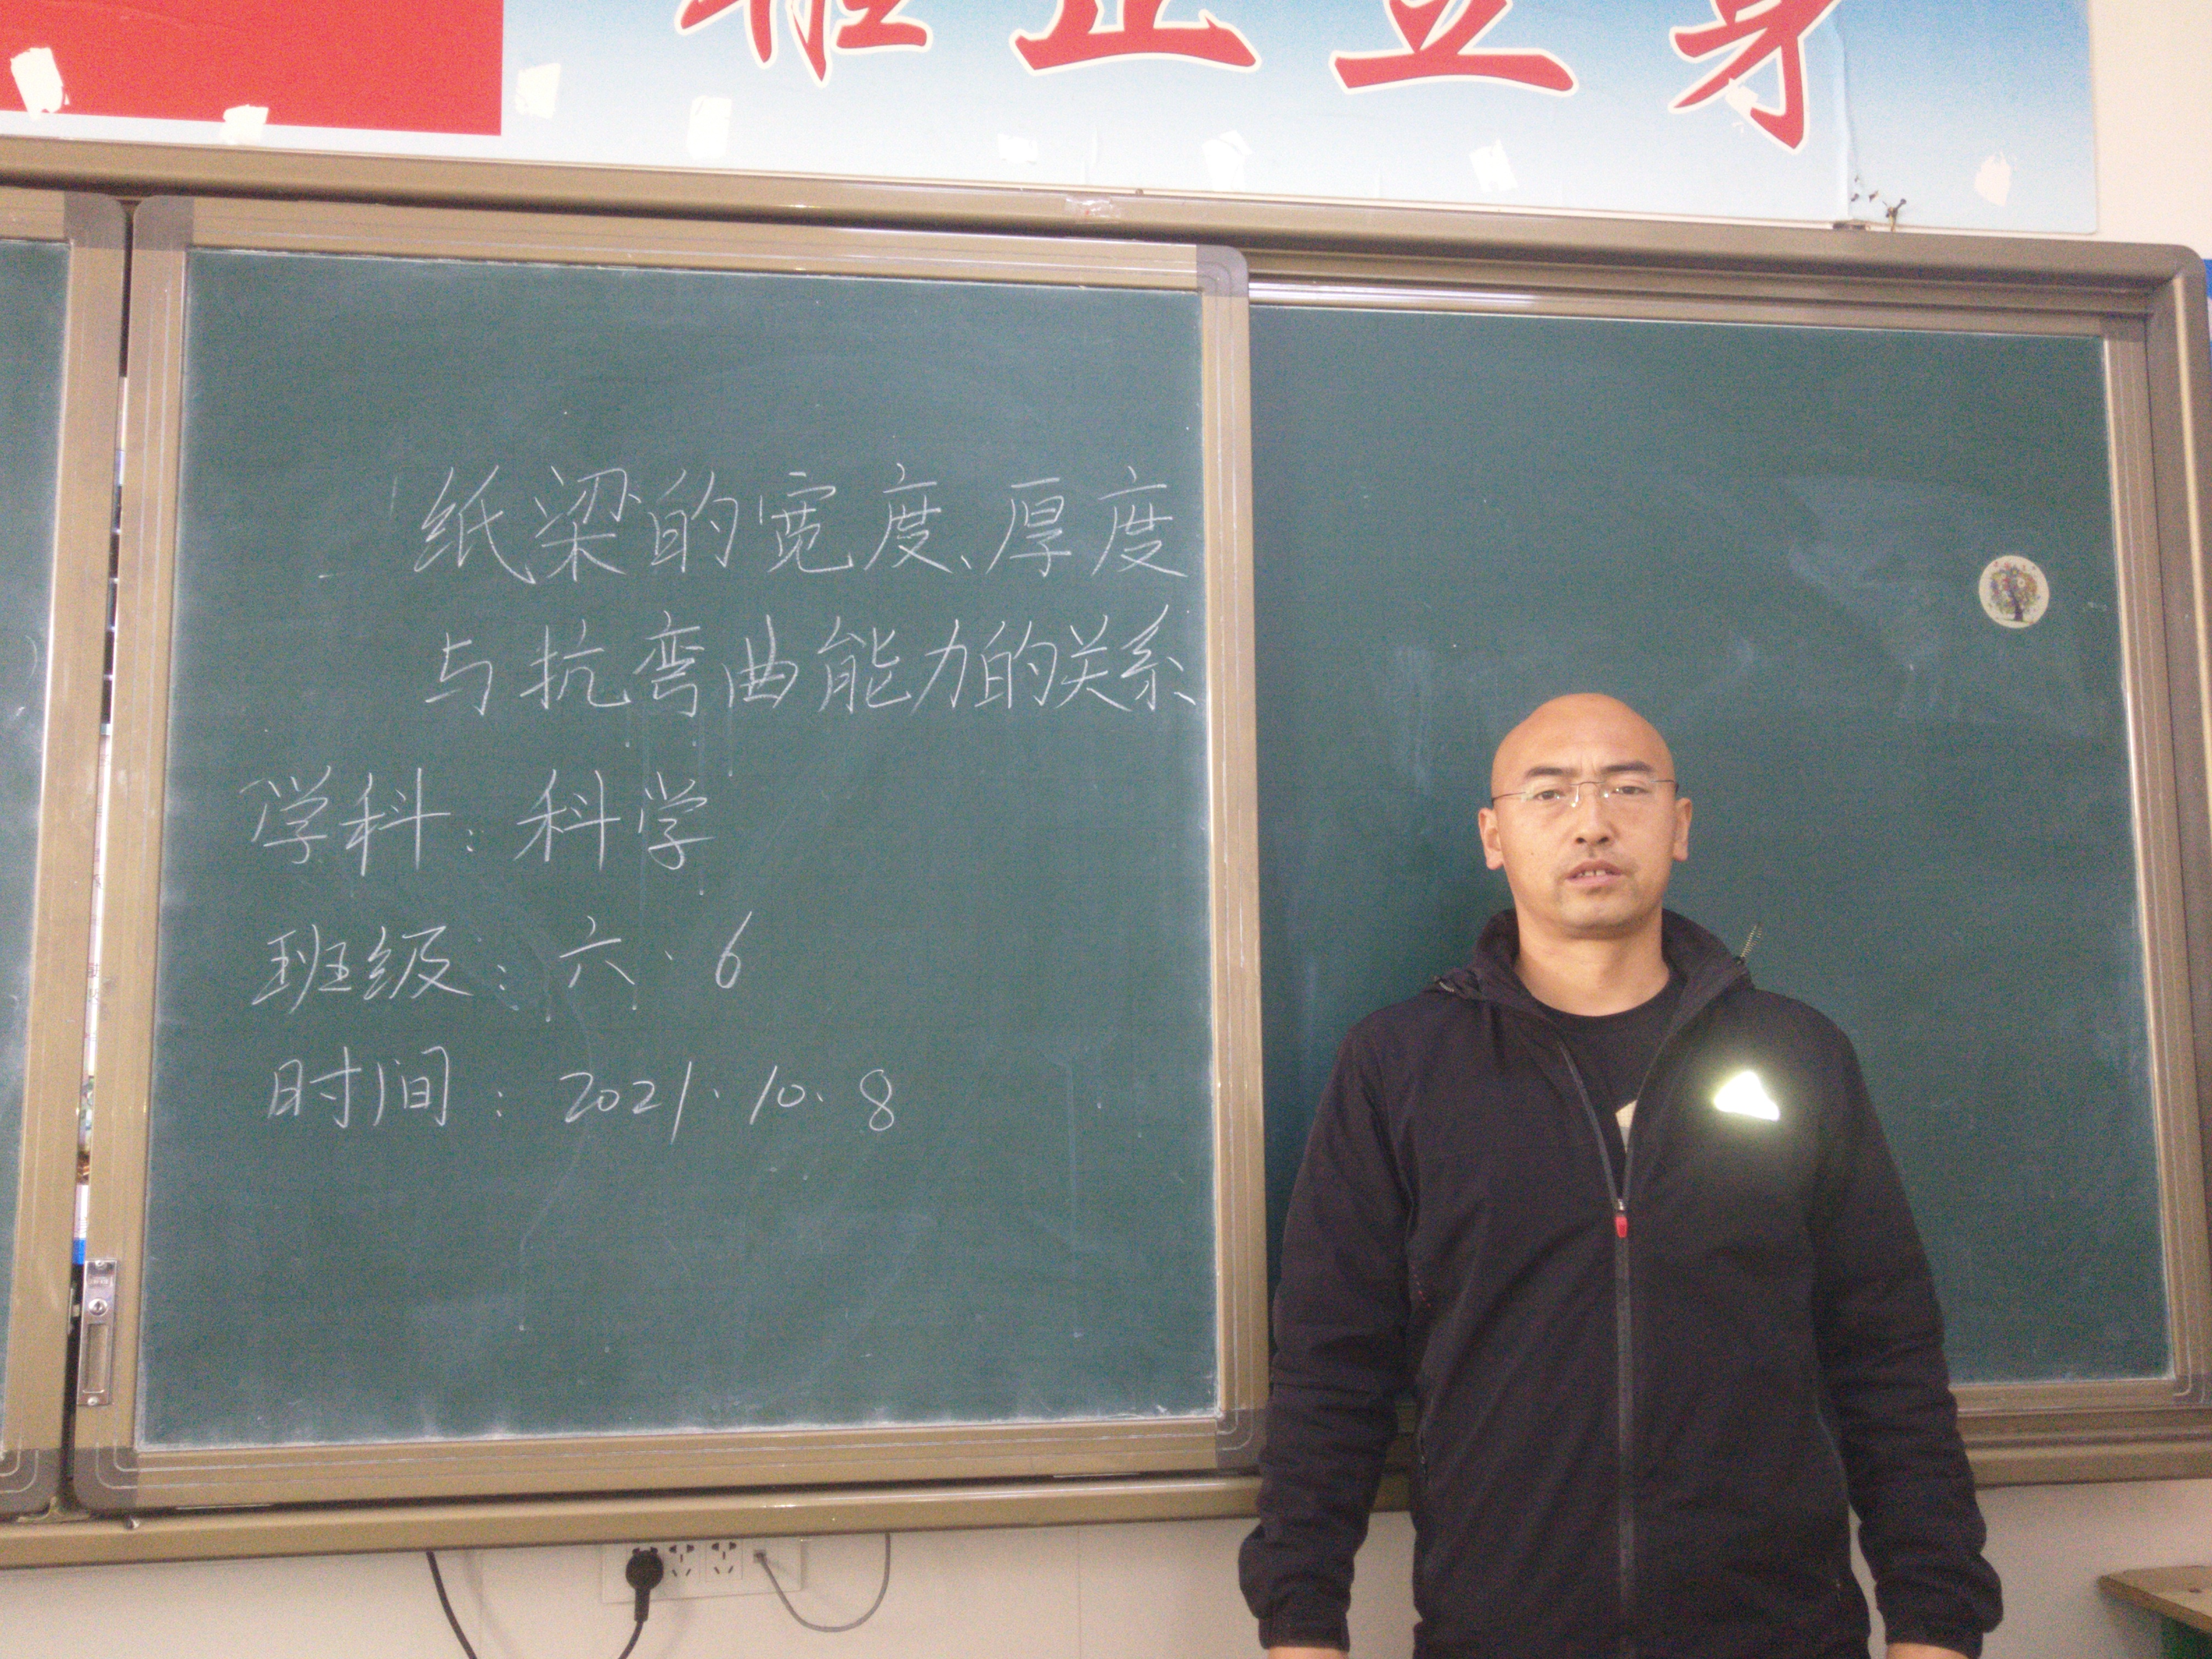 正立身
纸梁的宽度、厚度
与抗弯曲能力的关系
学科：科学
班级：六·6
时间：2021.10.8